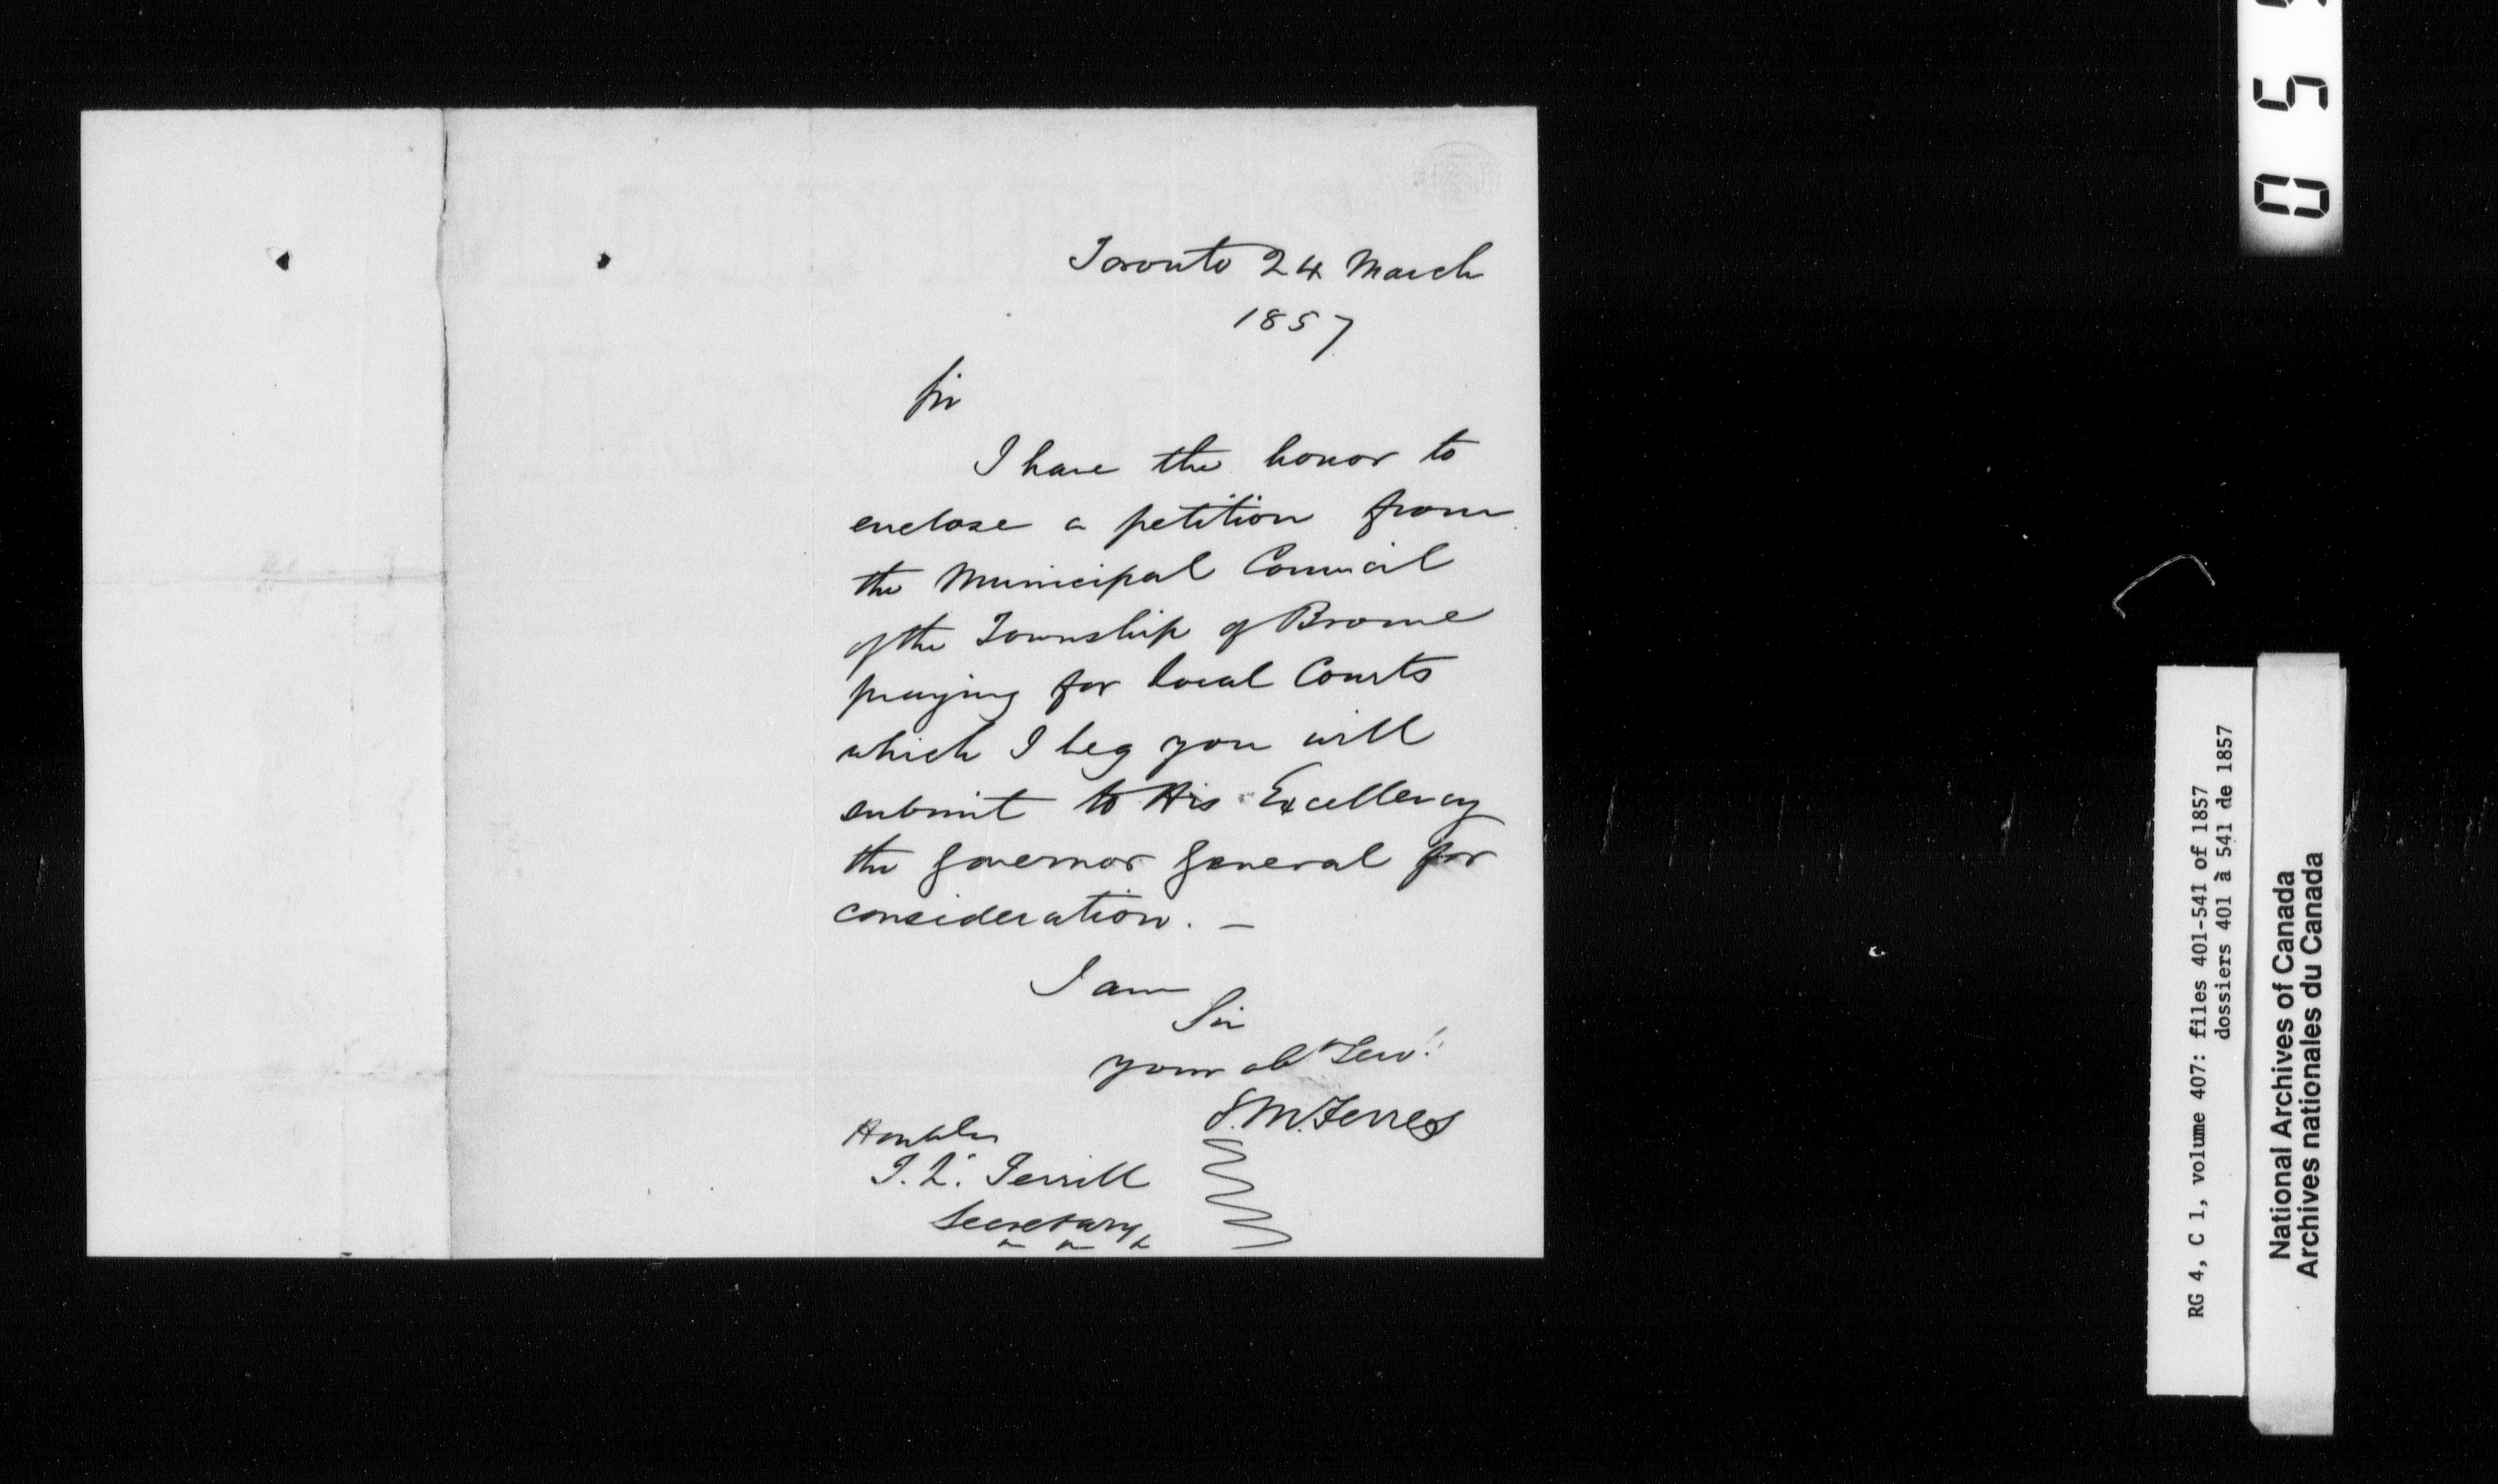 Toronto 24 March
1857
Sir
I have the honor to
enclose a petition from
the Municipal Council
of the Township of Brome
praying for local Courts
which I beg you will
submit to His Excellency
the Governor General for
consideration. —
I am
Sir
your obt Servt
J. M. Ferres
Honble
T. L. Terrill
Secretary
RG 4, C 1, volume 407: files 401-541 of 1857
dossiers 401 à 541 de 1857
National Archives of Canada
Archives nationales du Canada